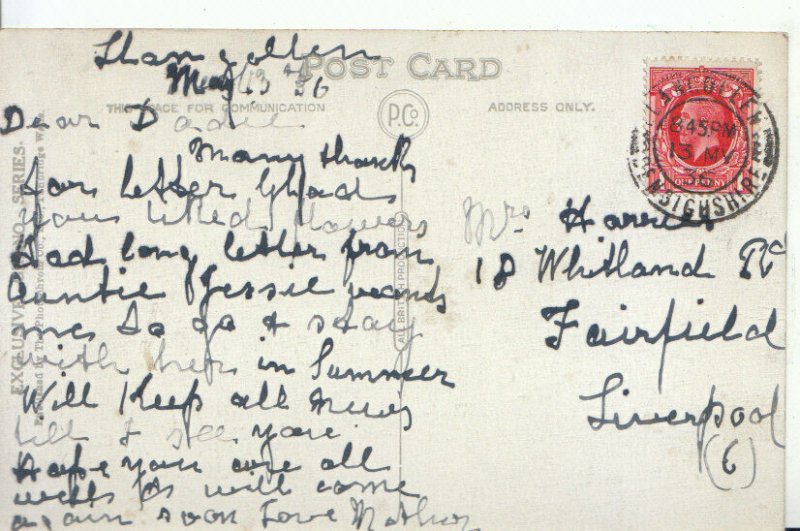 Llangollen
May 13th 36
POST CARD
THIS SPACE FOR COMMUNICATION
ADDRESS ONLY.
P.Co.
Dear
Many thanks
for letter Glad
you liked flowers
Had long letter from
Auntie Jessie wants
me to go & stay
with her in Summer
Will Keep all news
till I see you
Hope you are all
well As will come
again soon Love Mother
EXCLUSIVE
SERIES.
ALL BRITISH PRODUCTION
Mrs Harries
18 Whitland Rd
Fairfield
Liverpool
(6)
LLANGOLLEN
6.45 PM
13 MY
36
DENBIGHSHIRE
ONE PENNY